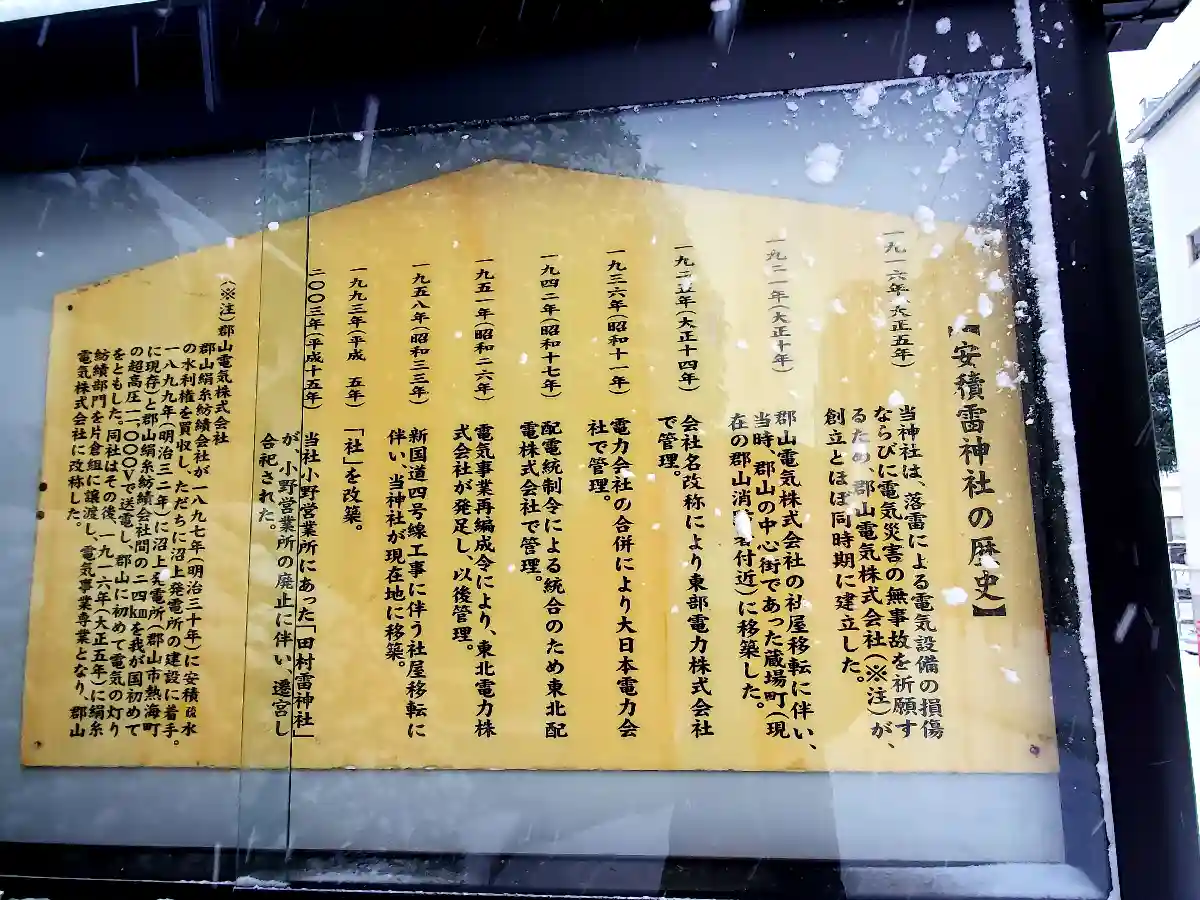 【安積雷神社の歴史】
一九一六年(大正五年)
当神社は、落雷による電気設備の損傷
ならびに電気災害の無事故を祈願す
るため、郡山電気株式会社(※注)が、
創立とほぼ同時期に建立した。
一九二一年(大正十年)
郡山電気株式会社の社屋移転に伴い、
当時、郡山の中心街であった蔵場町(現
在の郡山消防署付近)に移築した。
一九二五年(大正十四年)
会社名改称により東部電力株式会社
で管理。
一九三六年(昭和十一年)
電力会社の合併により大日本電力会
社で管理。
一九四二年(昭和十七年)
配電統制令による統合のため東北配
電株式会社で管理。
一九五一年(昭和二六年)
電気事業再編成令により、東北電力株
式会社が発足し、以後管理。
一九五八年(昭和三三年)
新国道四号線工事に伴う社屋移転に
伴い、当神社が現在地に移築。
一九九三年(平成 五年)
「社」を改築。
二〇〇三年(平成十五年)
当社小野営業所にあった「田村雷神社」
が、小野営業所の廃止に伴い、遷宮し
合祀された。
(※注)郡山電気株式会社
郡山絹糸紡績会社が一八九七年(明治三十年)に安積疏水
の水利権を買収し、ただちに沼上発電所の建設に着手。
一八九九年(明治三二年)に沼上発電所(郡山市熱海町
に現存)と郡山絹糸紡績会社間の二四㎞を我が国初めて
の超高圧一一、〇〇〇Vで送電し、郡山に初めて電気の灯り
をともした。同社はその後、一九一六年(大正五年)に絹糸
紡績部門を片倉組に譲渡し、電気事業専業となり、郡山
電気株式会社に改称した。